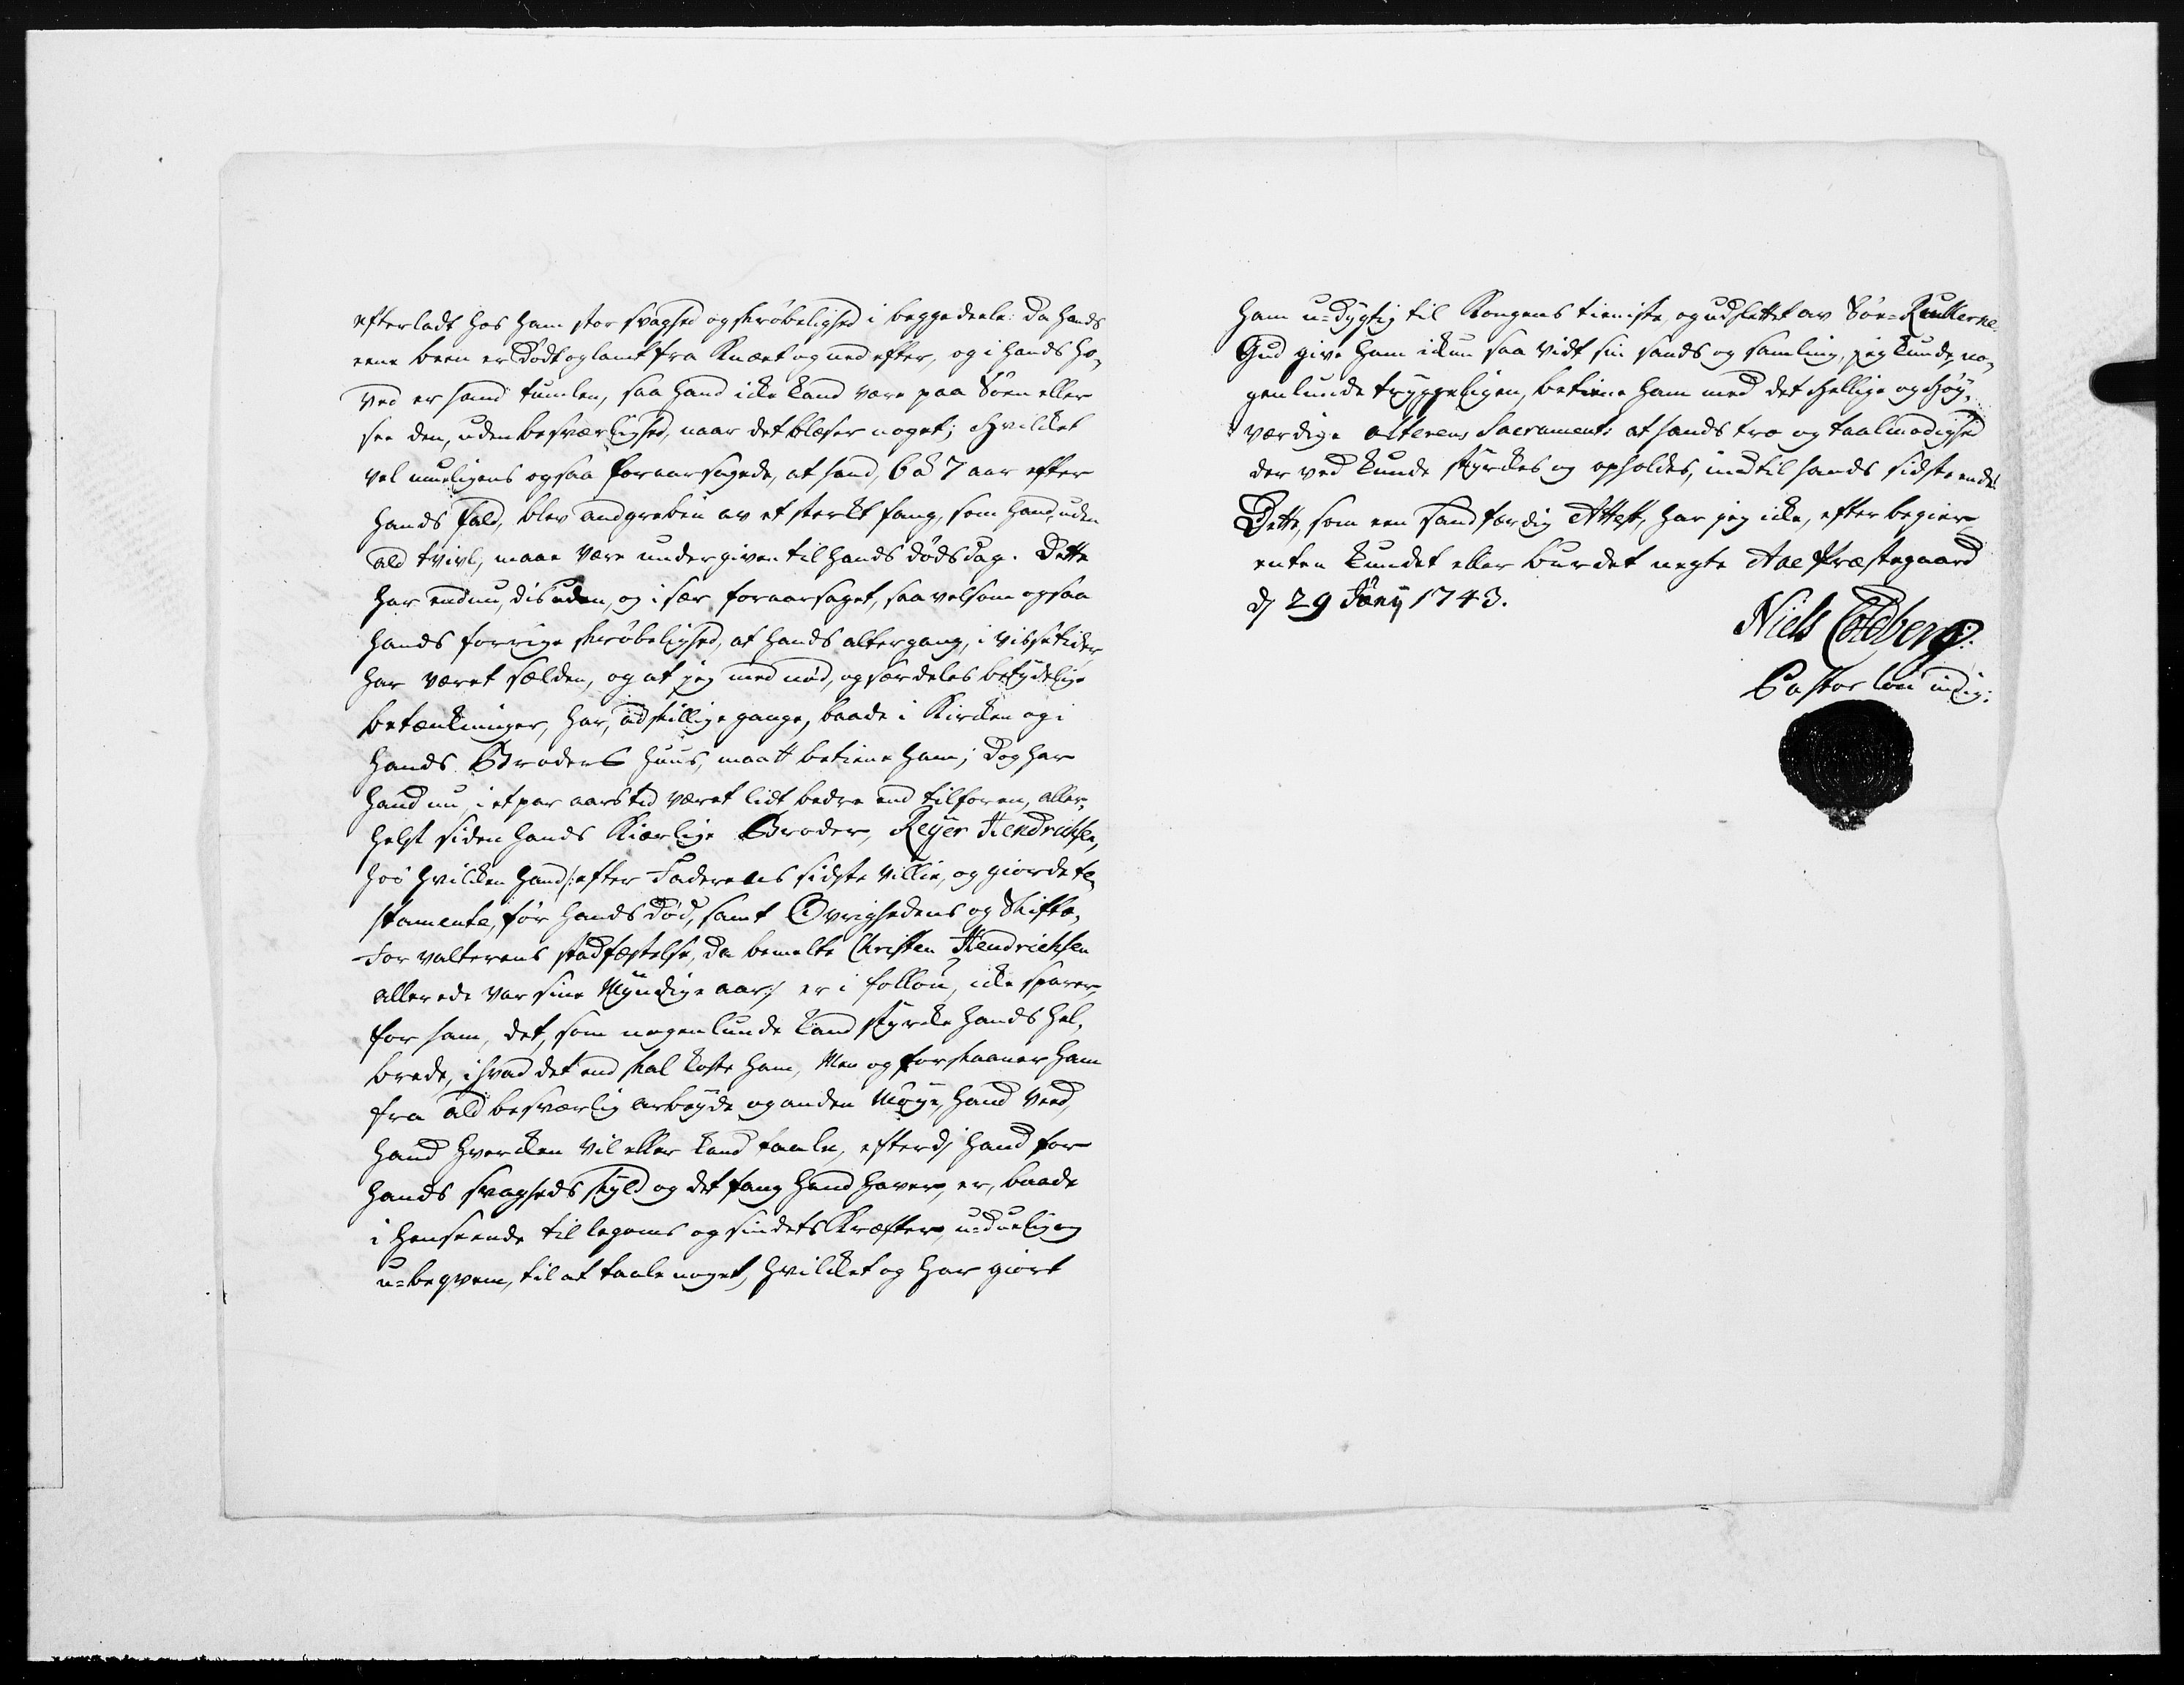 efterladt hos ham stor svaghed og skrøbelighed i begge deele: da hands
eene been er dødt og lamt fra Knæet og ned efter, og i hands ho,
ved er hand tumlen, saa hand icke kand være paa Søen eller
see den, uden besværlighed, naar det blæser noget; Hvilcket
vel mueligens ogsaa foraarsagede, at hand, 6 à 7 aar efter
hands fald, blev andgreben av et sterkt fang, som hand, uden
ald tvivl, maae være undergiven til hands dødsdag. Dette
har endnu, disuden, og i sær foraarsaget, saavelsom ogsaa
hands forrige skrøbelighed, at hands altergang, i visse tider,
har været sielden, og at jeg med nød, og særdeles betydelige
betænkninger, har, adskillige gange, baade i Kircken og i
hands Broders huus, maatt betiene ham; dog har
hand nu, i et par aars tid været lidt bedre end tilforen, aller,
helst siden hands Kiærlige Broder, Reÿer Hendrichsen,
hos hvilcken hand /: efter Faderens sidste villie, og giorde te,
stamente, før hands død, samt Øvrighedens og Skifte,
Forvalterens stadfæstelse, da bemelte Christen Hendrichsen
allerede var sine Myndige aar :/ er i follou, icke sparer,
for ham, det, som nogenlunde kand styrcke hands hel,
brede, i hvad det end skal koste ham, Men og forskaaner ham
fra ald besværlig arbeyde og anden Møye, hand veed,
hand hvercken vil eller kand taale, efterdj hand for
hands svagheds skyld og det fang hand haver, er, baade
i henseende til legoms og sindets Kræfter, u-duelig og
u-beqvem, til at taale noget, hvilcket og har giort
ham u-dygtig til Kongens tieniste, og udslettet av Søe-Rullerne.
Gud give ham ickun saa vidt sin sands og samling, jeg kunde, no,
genlunde tryggeligen, betiene ham med det hellige og høy,
værdige alterens Sacramente at hands tro og taalmodighed
der ved kunde styrckes og opholdes, indtil hands sidste ende.
Dette, som een sandfærdig Attest, har jeg icke, efter begier,
enten kundet eller burdet negte Aae Præstegaard
dj 29 Junij 1743.
Niels Coldberg:
Pastor loci indig: